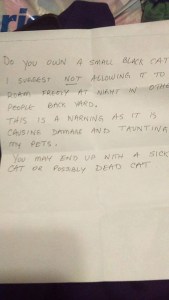 DO YOU OWN A SMALL BLACK CAT
I SUGGEST NOT ALLOWING IT TO
ROAM FREELY AT NIGHT IN OTHER
PEOPLE BACK YARD.
THIS IS A WARNING AS IT IS
CAUSING DAMAGE AND TAUNTING
MY PETS.
YOU MAY END UP WITH A SICK
CAT OR POSSIBLY DEAD CAT